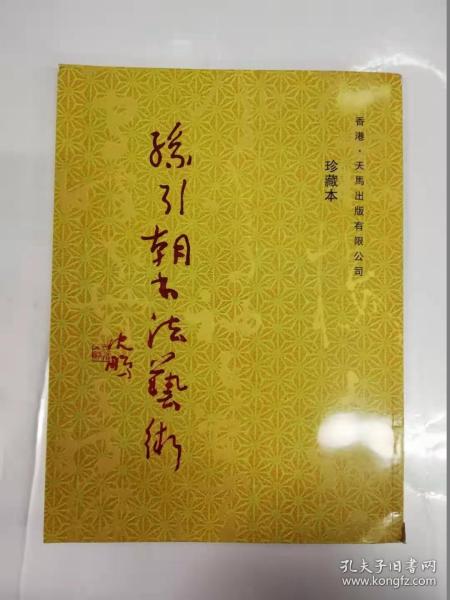 香港·天馬出版有限公司
珍藏本
孫引朝书法藝術
沈鹏
孔夫子旧书网
www.kongfz.com